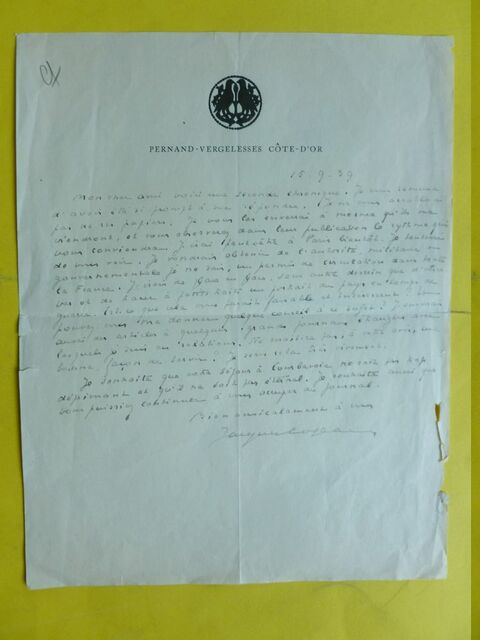 PERNAND-VERGELESSES CÔTE-D'OR
15.9.39
Mon cher ami voici une seconde chronique. Je vous remercie
d'avoir été si prompt à me répondre. Je ne vous accablerai
pas de ces papiers. Je vous les enverrai à mesure qu'ils me
viendront, et vous observerez dans leur publication le rythme qui
vous conviendra. J'irai peut-être à Paris bientôt. Je
de vous voir. Je voudrais obtenir de l'autorité militaire ou
gouvernementale, je ne sais, un permis de circulation dans toute
la France. J'irais de çà de là, sans autre dessein que d'être
vu et de faire à petits traits un portrait du pays en temps de
guerre. Est-ce que cela vous paraît faisable et intéressant ?
pouvez-vous me donner quelque conseil à ce sujet ?
aussi des articles à quelques grands journaux étrangers avec
lesquels je suis en relations. Ne serait-ce pas, à votre avis, une
bonne façon de servir ? Je
Je souhaite que votre séjour à Courbevoie ne soit pas trop
déprimant et qu'il ne soit pas éternel. Je souhaite aussi que
vous puissiez continuer à vous occuper du journal.
Bien amicalement à vous
Jacques Copeau